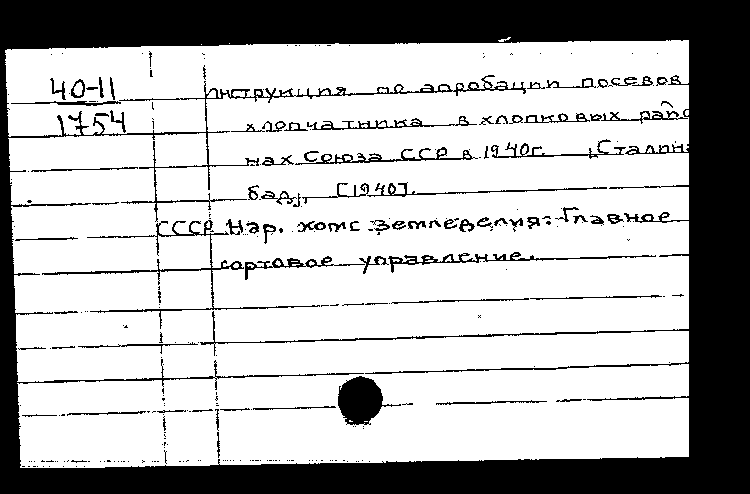 40-11
1754
Инструкция по апробации посевов
хлопчатника в хлопковых райо
нах Союза ССР в 1940г. [Сталина
бад], [1940].
СССР Нар. комс земледелия. Главное
сортовое управление.